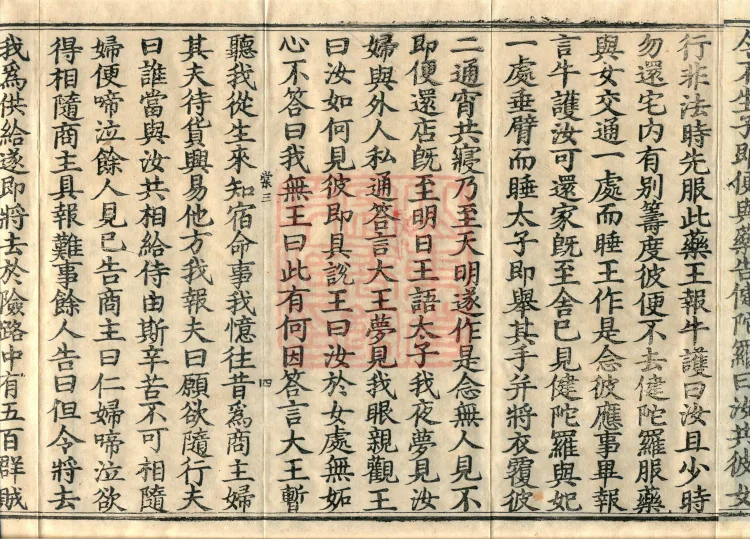 行非法時先服此藥王報牛護曰汝且少時
勿還宅內有別籌度彼便不去健陀羅服藥
與女交通一處而睡王作是念彼應事畢報
言牛護汝可還家旣至舍已見健陀羅與妃
一處垂臂而睡太子即舉其手并將衣覆彼
二通宵共寢乃至天明遂作是念無人見不
即便還店旣至明日王語太子我夜夢見汝
婦與外人私通答言大王夢見我眼親觀王
曰汝如何見彼即具說王曰汝於女處無妬
心不答曰我無王曰此有何因答言大王暫
棠三 四
聽我從生來知宿命事我憶往昔爲商主婦
其夫待貨興易他方我報夫曰願欲隨行夫
曰誰當與汝共相給侍由斯辛苦不可相隨
婦便啼泣餘人見已告商主曰仁婦啼泣欲
得相隨商主具報難事餘人告曰但令將去
我爲供給遂即將去於險路中有五百群賊